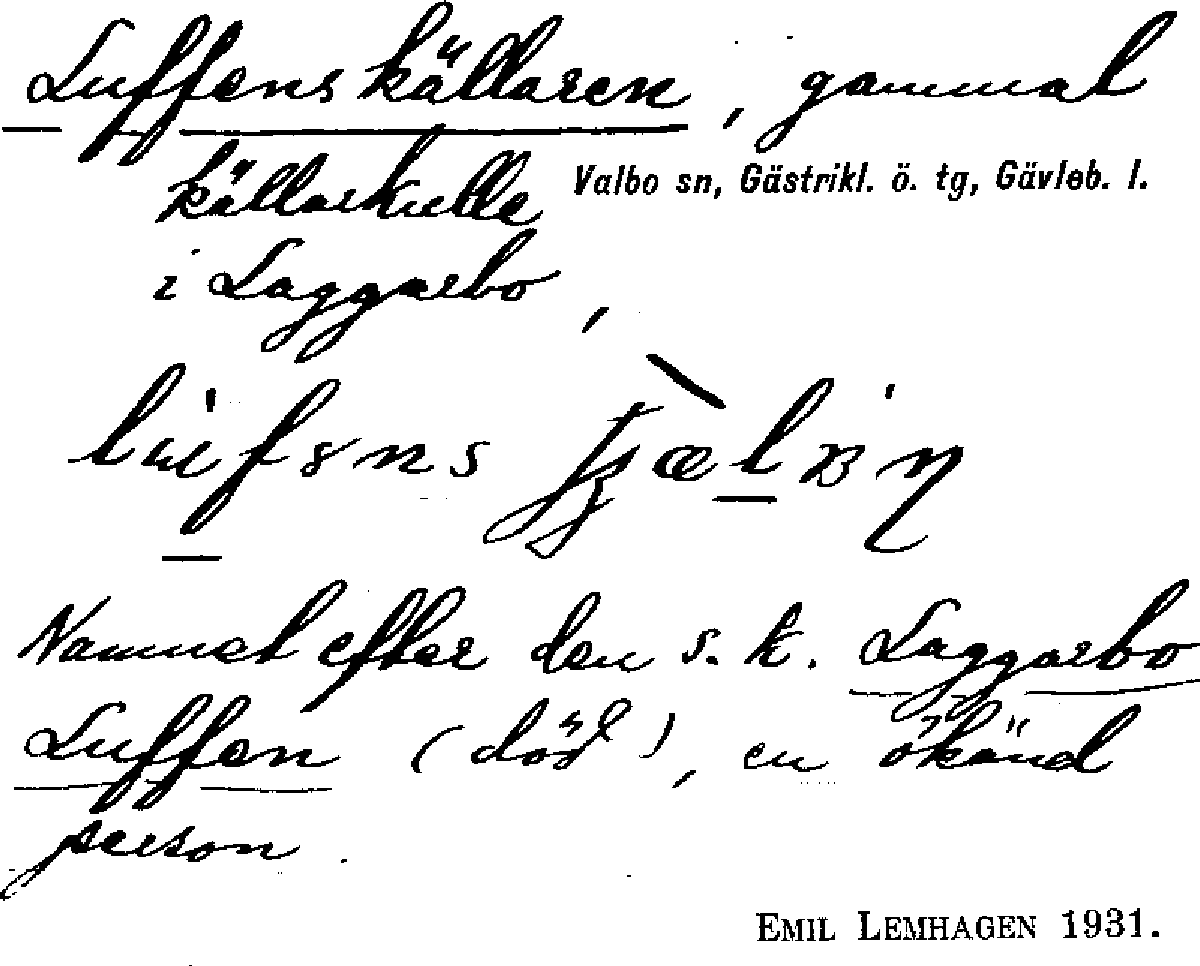 Luffenskällaren, gammal
källarkulle
Valbo sn, Gästrikl. ö. tg, Gävleb. l.
i Laggarbo,
Namnet efter den s. k. Laggarbo
Luffen (död), en ökänd
person.
EMIL LEMHAGEN 1931.